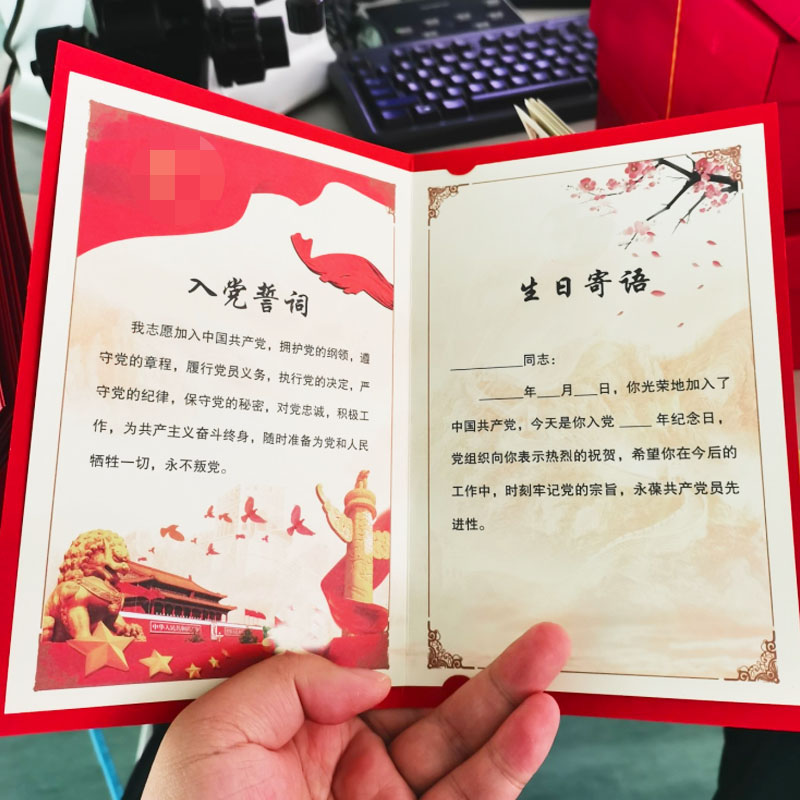 入党誓词
我志愿加入中国共产党，拥护党的纲领，遵
守党的章程，履行党员义务，执行党的决定，严
守党的纪律，保守党的秘密，对党忠诚，积极工
作，为共产主义奋斗终身，随时准备为党和人民
牺牲一切，永不叛党。
生日寄语
________同志：
______年___月___日，你光荣地加入了
中国共产党，今天是你入党 ____ 年纪念日，
党组织向你表示热烈的祝贺，希望你在今后的
工作中，时刻牢记党的宗旨，永葆共产党员先
进性。